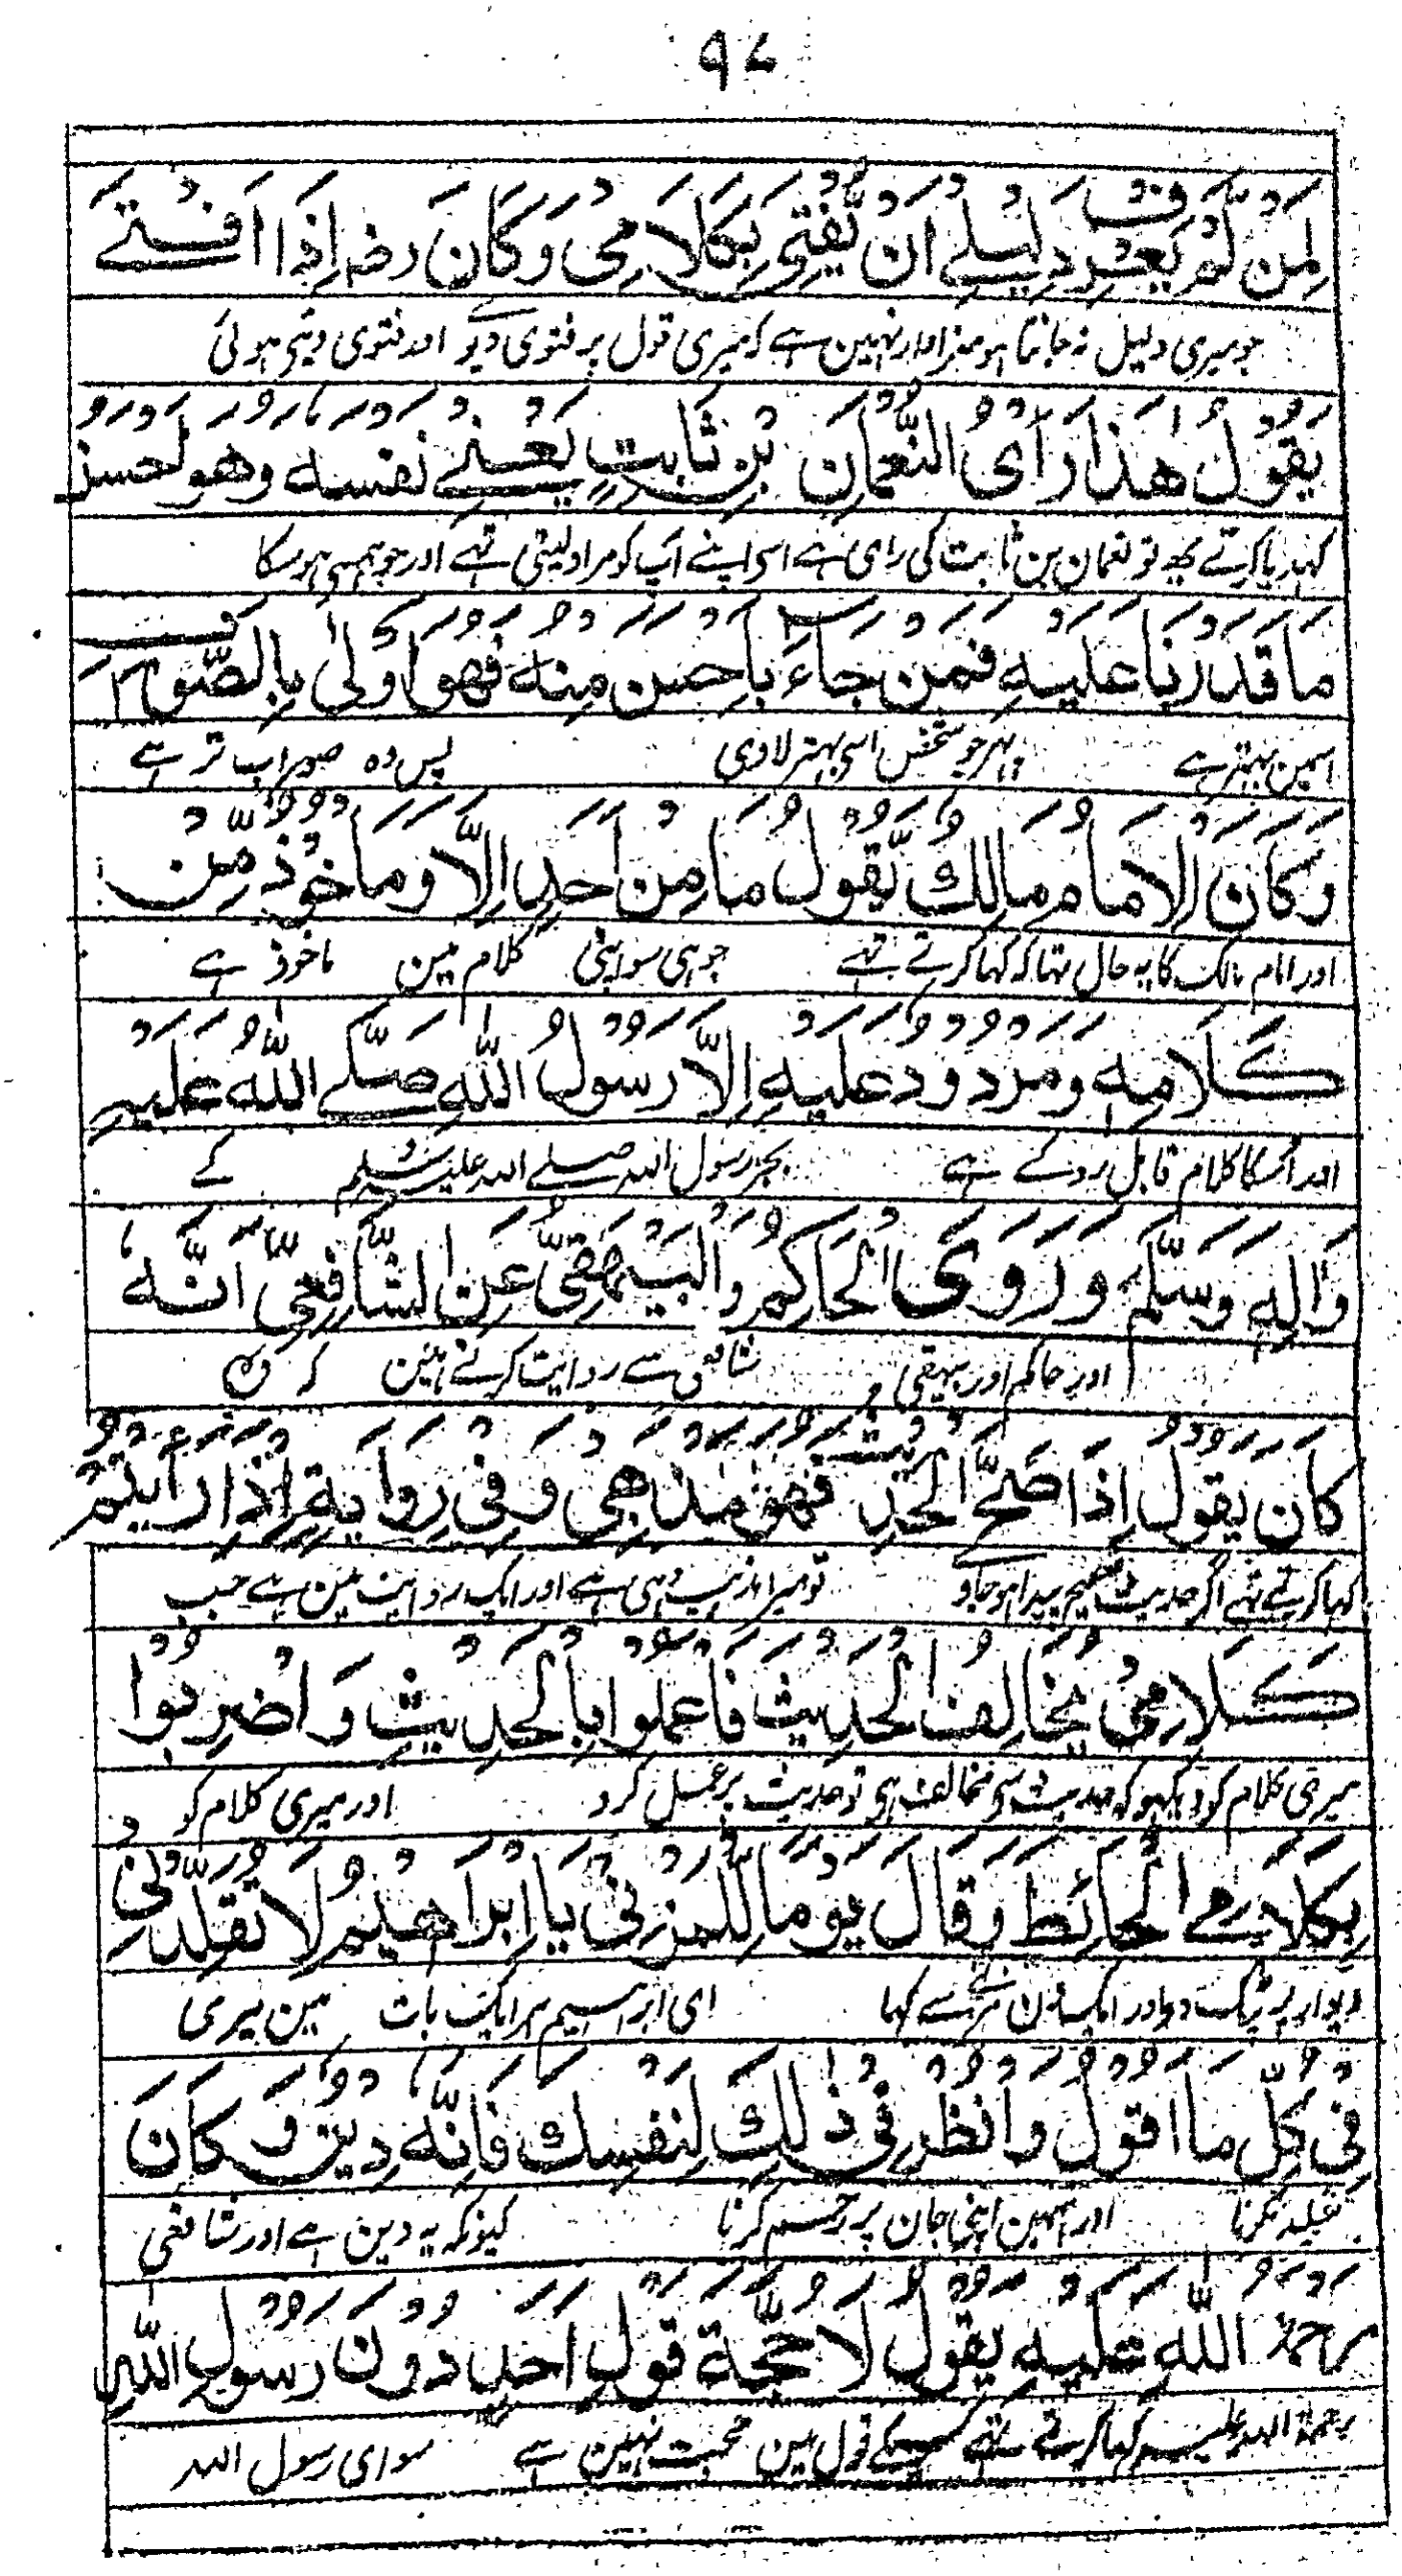 ۹۷
لِمَنْ لَّمْ يَعْرِفْ دَلِيْلِيْ اَنْ يُّفْتِيَ بِكَلَامِيْ وَكَانَ رضہ اِذَا اَفْتٰے
جو میری دلیل نہ جانتا ہو سزاوار نہین ہے کہ میری قول پر فتوی دیوے اور فتوی دیتی ہوئی
يَقُوْلُ هٰذَا رَأْيُ النُّعْمَانِ بْنِ ثَابِتٍ يَعْنِيْ نَفْسَهٗ وَهُوَ اَحْسَنُ
کہدیا کرتے یہ تو نعمان بن ثابت کی رای ہے اسی اپنے آپ کو مراد لیتی تہے اور جو ہمسی ہو سکا
مَا قَدَرْنَا عَلَيْهِ فَمَنْ جَاءَ بِاَحْسَنَ مِنْهُ فَهُوَ اَوْلٰى بِالصَّوَابِ
اسمین بہتر ہے پہر جو شخص اسی بہتر لاوی پس وہ صواب تر ہے
وَكَانَ الْاِمَامُ مَالِكٌ يَّقُوْلُ مَا مِنْ اَحَدٍ اِلَّا وَمَاْخُوْذٌ مِّنْ
اور امام مالک کا یہ حال تہا کہ کہا کرتے تہے جو ہی سو اپنی کلام مین ماخوذ ہے
كَلَامِهٖ وَمَرْدُوْدٌ عَلَيْهِ اِلَّا رَسُوْلُ اللّٰهِ صَلَّے اللّٰهُ عَلَيْهِ
اور اسکا کلام قابل رد کے ہے بجز رسول اللہ صلے اللہ علیہ وسلم کے
وَاٰلِهٖ وَسَلَّمَ وَرَوَى الْحَاكِمُ وَالْبَيْهَقِيُّ عَنِ الشَّافِعِيِّ اَنَّهٗ
اور حاکم اور بیہقی شافعی سے روایت کرتے ہین کہ وہ
كَانَ يَقُوْلُ اِذَا صَحَّ الْحَدِيْثُ فَهُوَ مَذْهَبِيْ وَفِيْ رِوَايَةٍ اِذَا رَاَيْتُمْ
کہا کرتے تہے اگر حدیث صحیح پیدا ہو جاوے تو میرا مذہب وہی ہے اور ایک روایت مین ہے جب
كَلَامِيْ يُخَالِفُ الْحَدِيْثَ فَاعْمَلُوْا بِالْحَدِيْثِ وَاضْرِبُوْا
میری کلام کو دیکہو کہ حدیث سی مخالف ہی تو حدیث پر عمل کرو اور میری کلام کو
بِكَلَامِيْ الْحَائِطَ وَقَالَ يَوْمًا لِلْمُزَنِيِّ يَا اِبْرَاهِيْمُ لَا تُقَلِّدْنِيْ
دیوار پر پٹک دو اور ایک دن مزنی سے کہا ای ابراہیم ہر ایک بات مین میری
فِيْ كُلِّ مَا اَقُوْلُ وَانْظُرْ فِيْ ذٰلِكَ لِنَفْسِكَ فَاِنَّهٗ دِيْنٌ وَكَانَ
تقلید نکرنا اور اسمین اپنی جان پر رحم کرنا کیونکہ یہ دین ہے اور شافعی
رَحْمَةُ اللّٰهِ عَلَيْهِ يَقُوْلُ لَا حُجَّةَ فِيْ قَوْلِ اَحَدٍ دُوْنَ رَسُوْلِ اللّٰهِ
رحمۃ اللہ علیہ کہا کرتے تہے کسیکے قول مین حجت نہین ہے سوای رسول اللہ